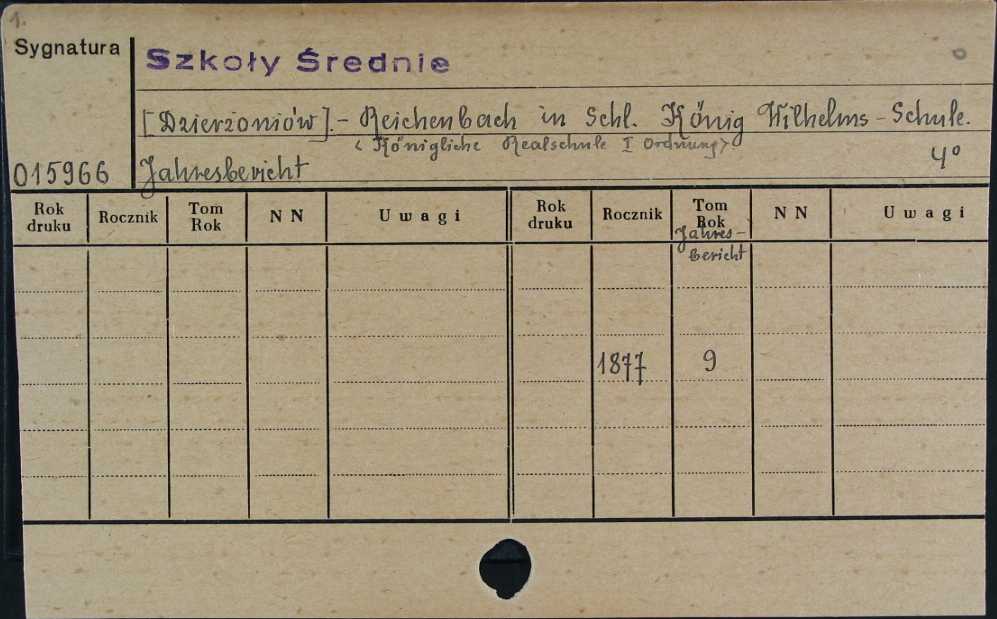 1.
Sygnatura
Szkoły Średnie
[Dzierżoniów].- Reichenbach in Schl. König Wilhelms-Schule.
<Königliche Realschule I Ordnung>
4°
015966
Jahresbericht
Rok druku Rocznik Tom Rok NN Uwagi Rok druku Rocznik Tom Rok NN Uwagi
Jahres-
bericht
1877 9